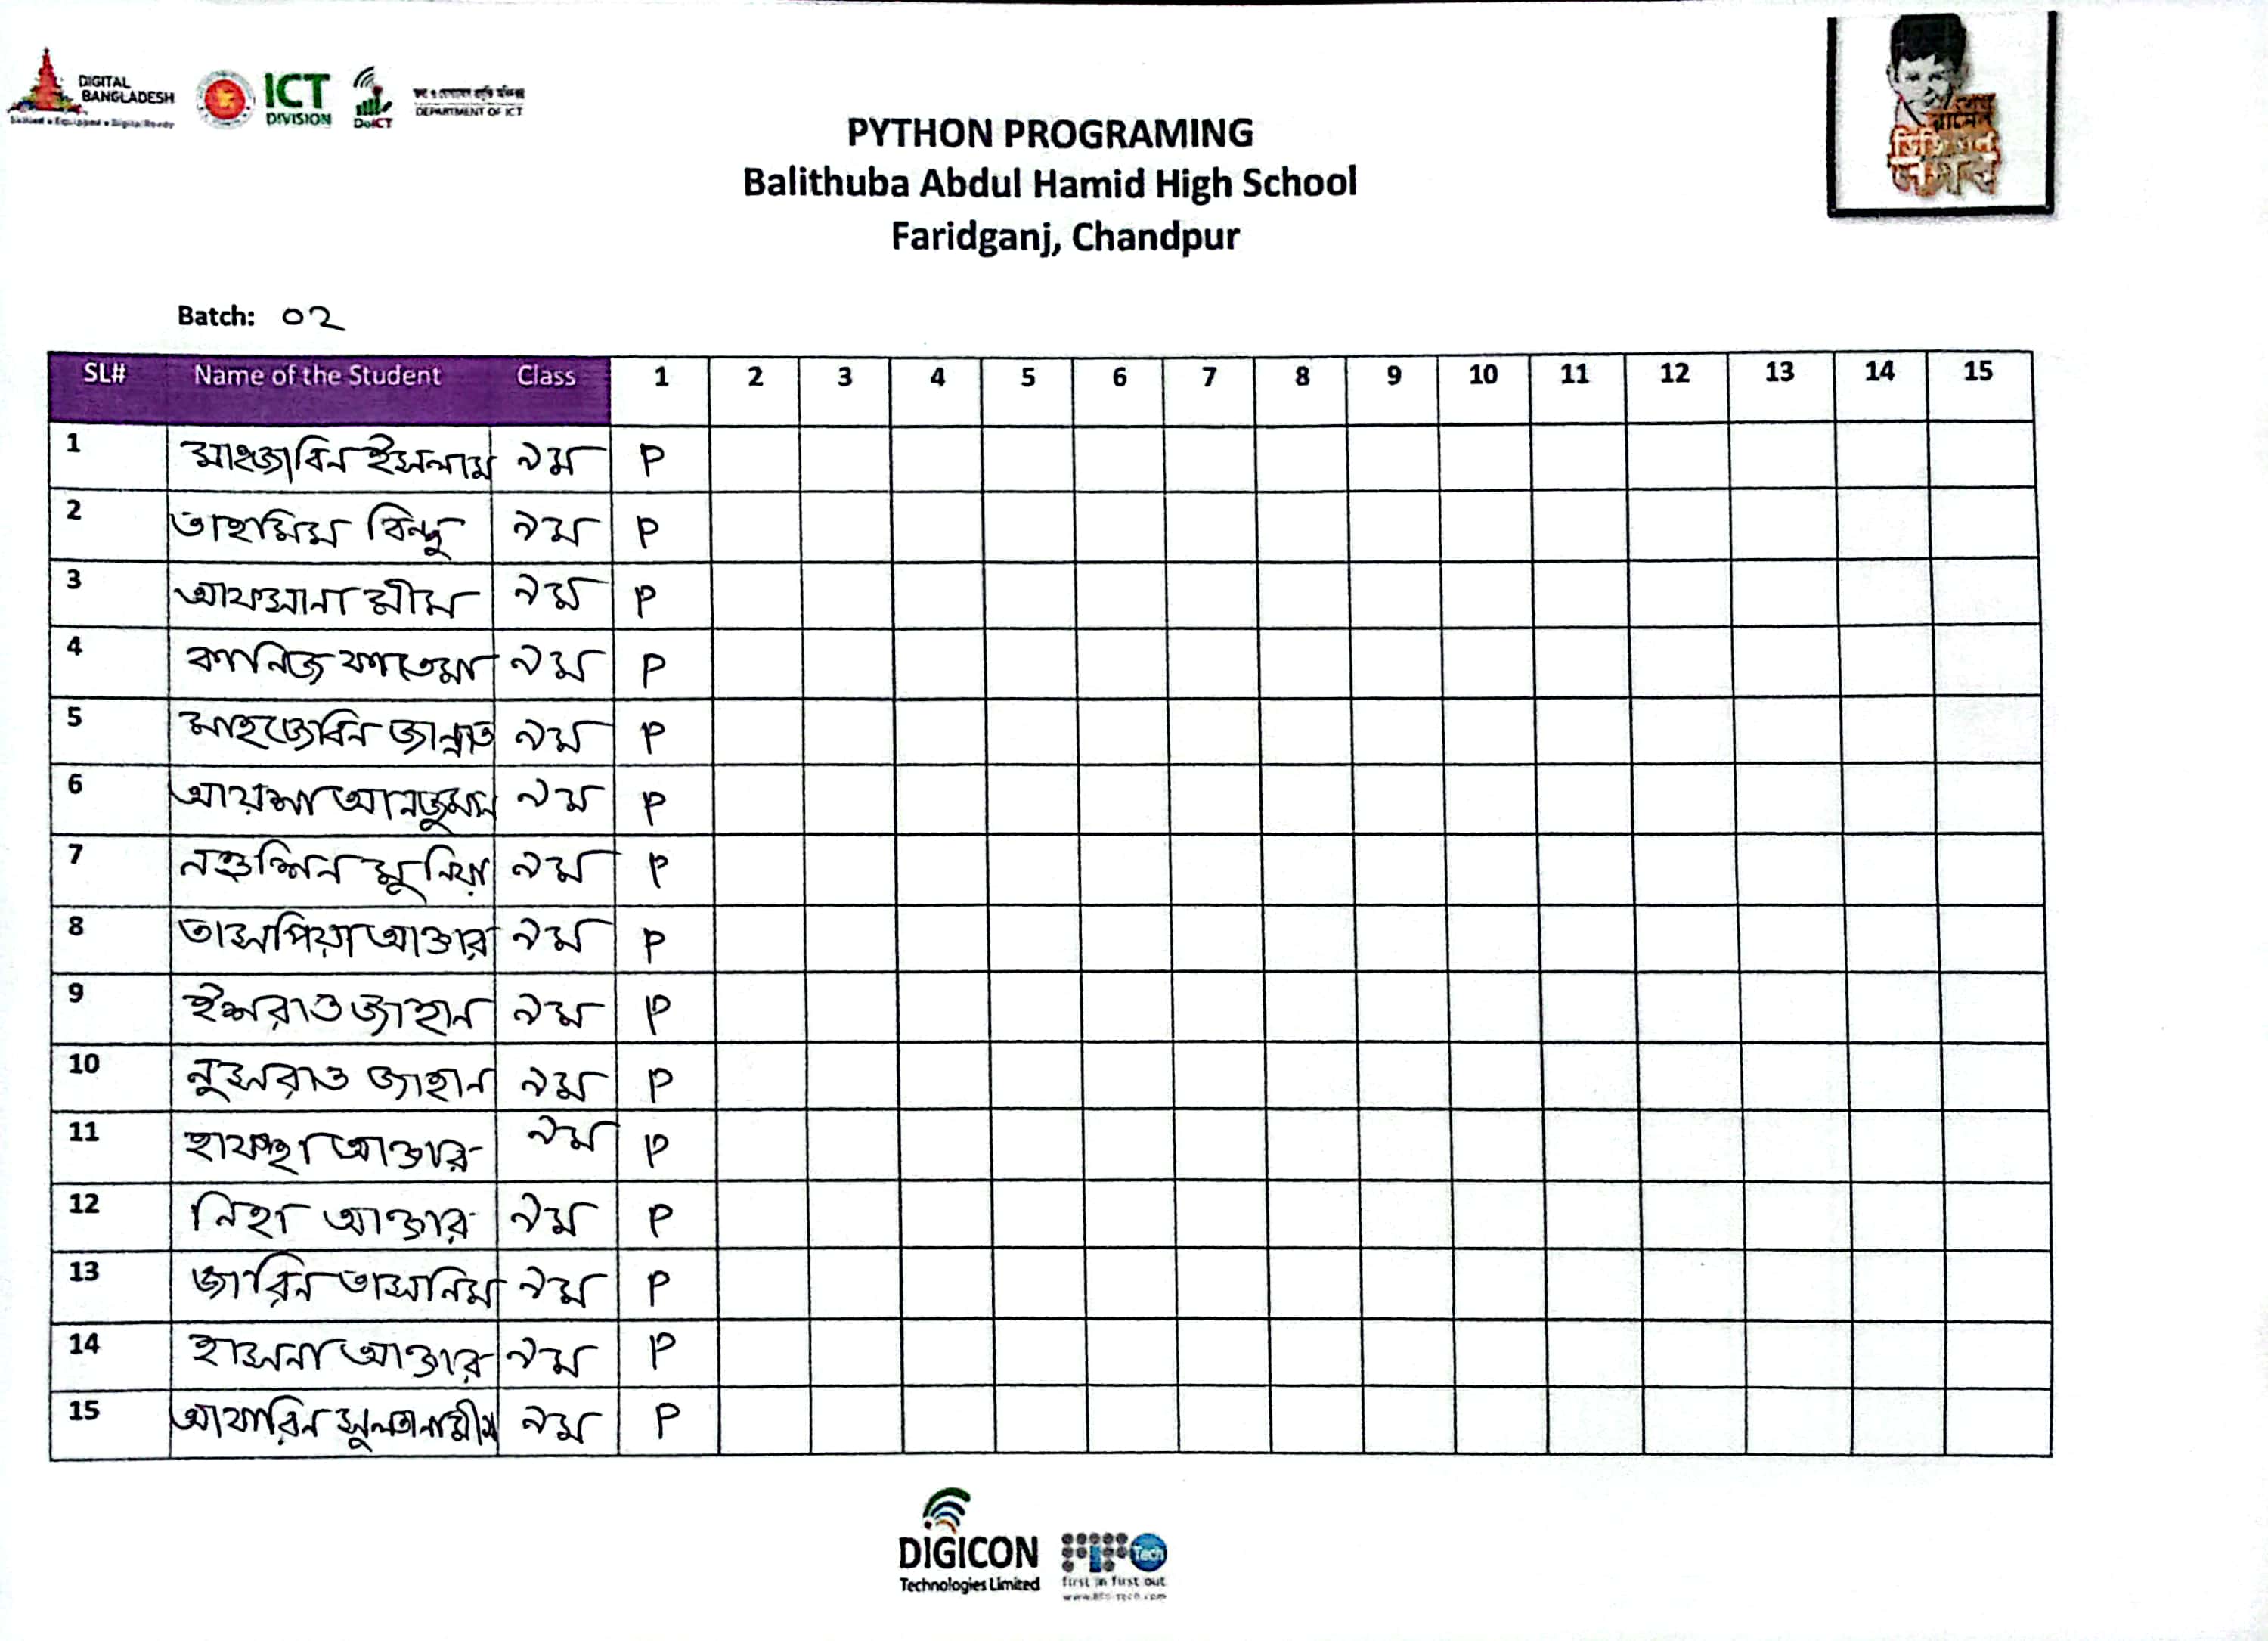 DIGITAL
BANGLADESH
ICT
DIVISION
DoICT
DEPARTMENT OF ICT
PYTHON PROGRAMING
Balithuba Abdul Hamid High School
Faridganj, Chandpur
Batch: ০২
SL# Name of the Student Class 1 2 3 4 5 6 7 8 9 10 11 12 13 14 15
1 মাহজাবিন ইসলাম ৯ম P
2 তাহমিম বিন্দু ৯ম P
3 আফসানা মীম ৯ম P
4 কানিজ ফাতেমা ৯ম P
5 মাহজেবিন জান্নাত ৯ম P
6 আয়শা আনজুমান ৯ম P
7 নওশিন মুনিয়া ৯ম P
8 তাসপিয়া আক্তার ৯ম P
9 ইশরাত জাহান ৯ম P
10 নুসরাত জাহান ৯ম P
11 আক্তার ৯ম P
12 নিহা আক্তার ৯ম P
13 জারিন তাসনিম ৯ম P
14 হাসনা আক্তার ৯ম P
15 আফারিন সুলতানা মীম ৯ম P
DIGICON
Technologies Limited
Tech
first in first out